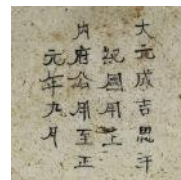 大元成吉思汗
祝國用上
內府公用至正
元年九月